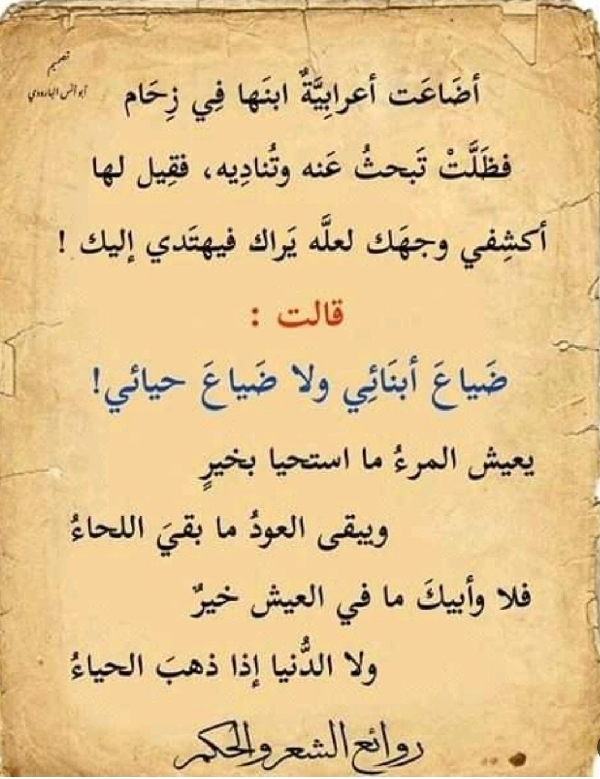 تصميم
أبو أنس البارودي
أضَاعَت أعرابِيَّةٌ ابنَها فِي زِحَام
فظَلَّتْ تَبحثُ عَنه وتُنادِيه، فقِيل لها
أكشِفي وجهَك لعلَّه يَراك فيهتَدي إليك !
قالت :
ضَياعَ أبنَائِي ولا ضَياعَ حيائي!
يعيش المرءُ ما استحيا بخيرٍ
ويبقى العودُ ما بقيَ اللحاءُ
فلا وأبيكَ ما في العيش خيرٌ
ولا الدُّنيا إذا ذهبَ الحياءُ
روائع الشعر والحكم